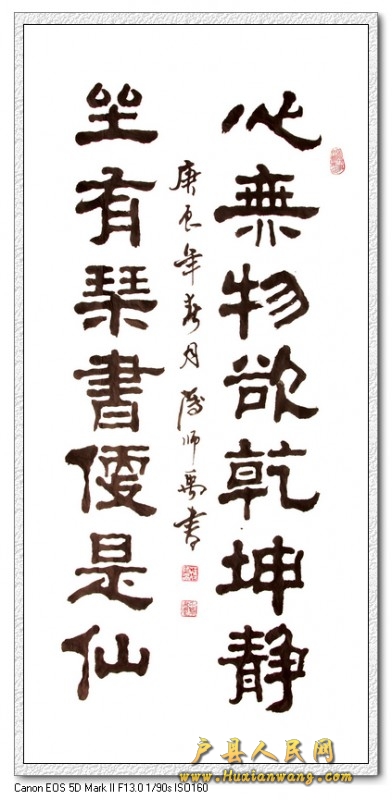 心無物欲乾坤静
庚辰年春月 师禹书
坐有琴書便是仙
户县人民网
www.Huxianwang.com
Canon EOS 5D Mark II F13.0 1/90s ISO160